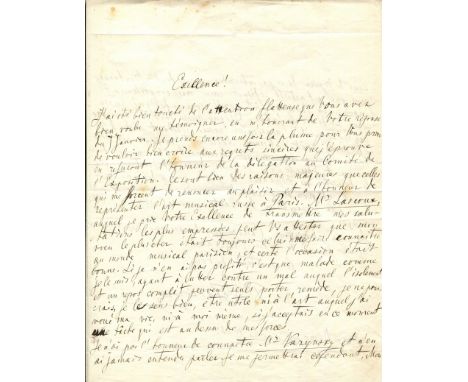 Exellence!
J'ai été bien touché de l'attention flatteuse que Vous avez
bien voulu me témoigner, en m'honorant de Votre réponse
du 7 Janvier. Je prends encore une fois la plume pour Vous prier
de vouloir bien croire aux regrets sincères que j'éprouve
en refusant l'honneur de la délégation au Comité de
l'Exposition. Ce sont bien des raisons majeures que celles
qui me forcent de renoncer au plaisir et à l'honneur de
représenter l'art musical russe à Paris. Mr Lascoux,
auquel je prie Votre Exellence de transmettre mes salu-
tations les plus empressées, peut Vous attester que mon
rêve le plus cher était toujours celui de me faire connaître
au monde musical parisien, et cette occasion était
bonne. Si je n'en ai pas profité c'est que malade comme
je le suis, ayant à lutter contre un mal auquel l'isolement
et un repos complet peuvent seuls porter remède, je ne pou-
rrais, je le sens bien, être utile ni à l'art auquel j'ai
voué ma vie, ni à moi même, si j'acceptais en ce moment
une tâche qui est au dessus de mes forces.
Je n'ai pas l'honneur de connaître Mr et n'en
ai jamais entendu parler. Je me permettrai cependant,